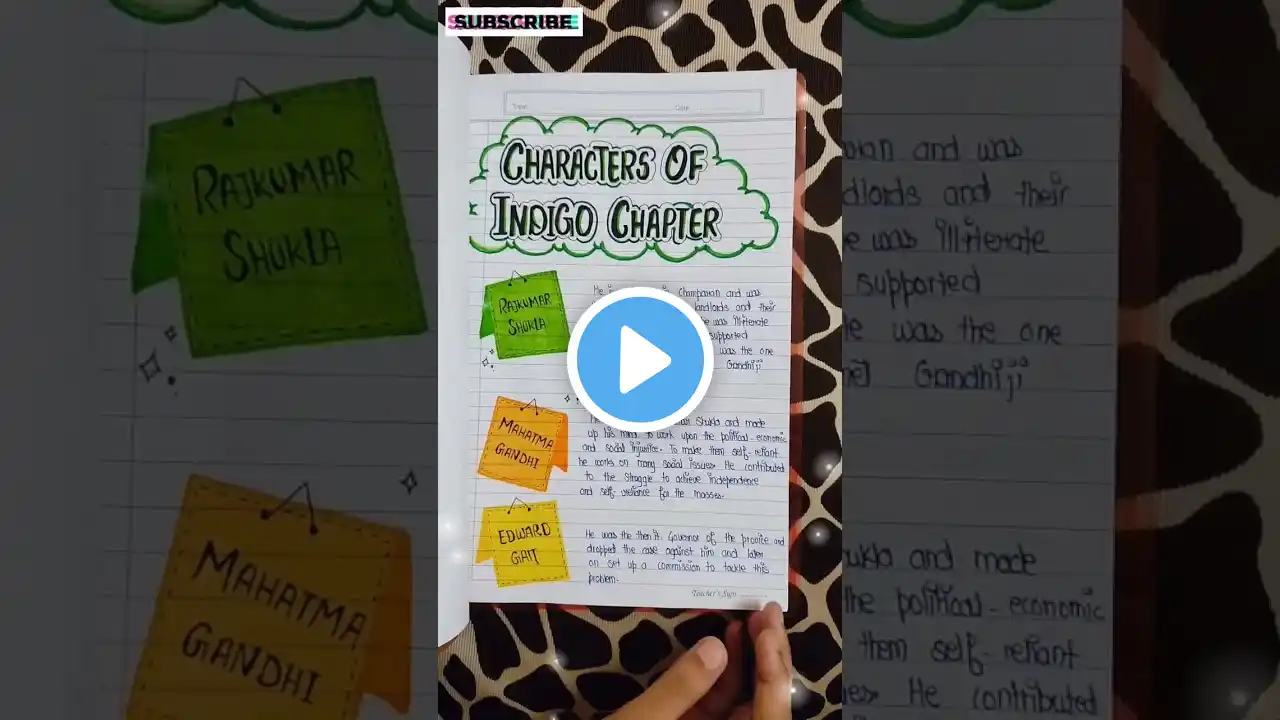 SUBSCRIBE
CHARACTERS OF
INDIGO CHAPTER
RAJKUMAR
SHUKLA
He Champaran and was
landlords and their
he was illiterate
supported
was the one
Gandhiji
MAHATMA
GANDHI
Shukla and made
up his mind to work upon the political-economic
and social injustice. To make them self-reliant
he works on many social issues. He contributed
to the struggle to achieve independence
and self-reliance for the masses.
EDWARD
GAIT
He was the then lt. Governor of the provice and
dropped the case against him and later
on set up a commission to tackle this
problem.
Teacher's Sign
RAJKUMAR
SHUKLA
MAHATMA
GANDHI
and was
dlords and their
e was illiterate
supported
he was the one
Gandhiji
ukla and made
the political-economic
them self-reliant
He contributed